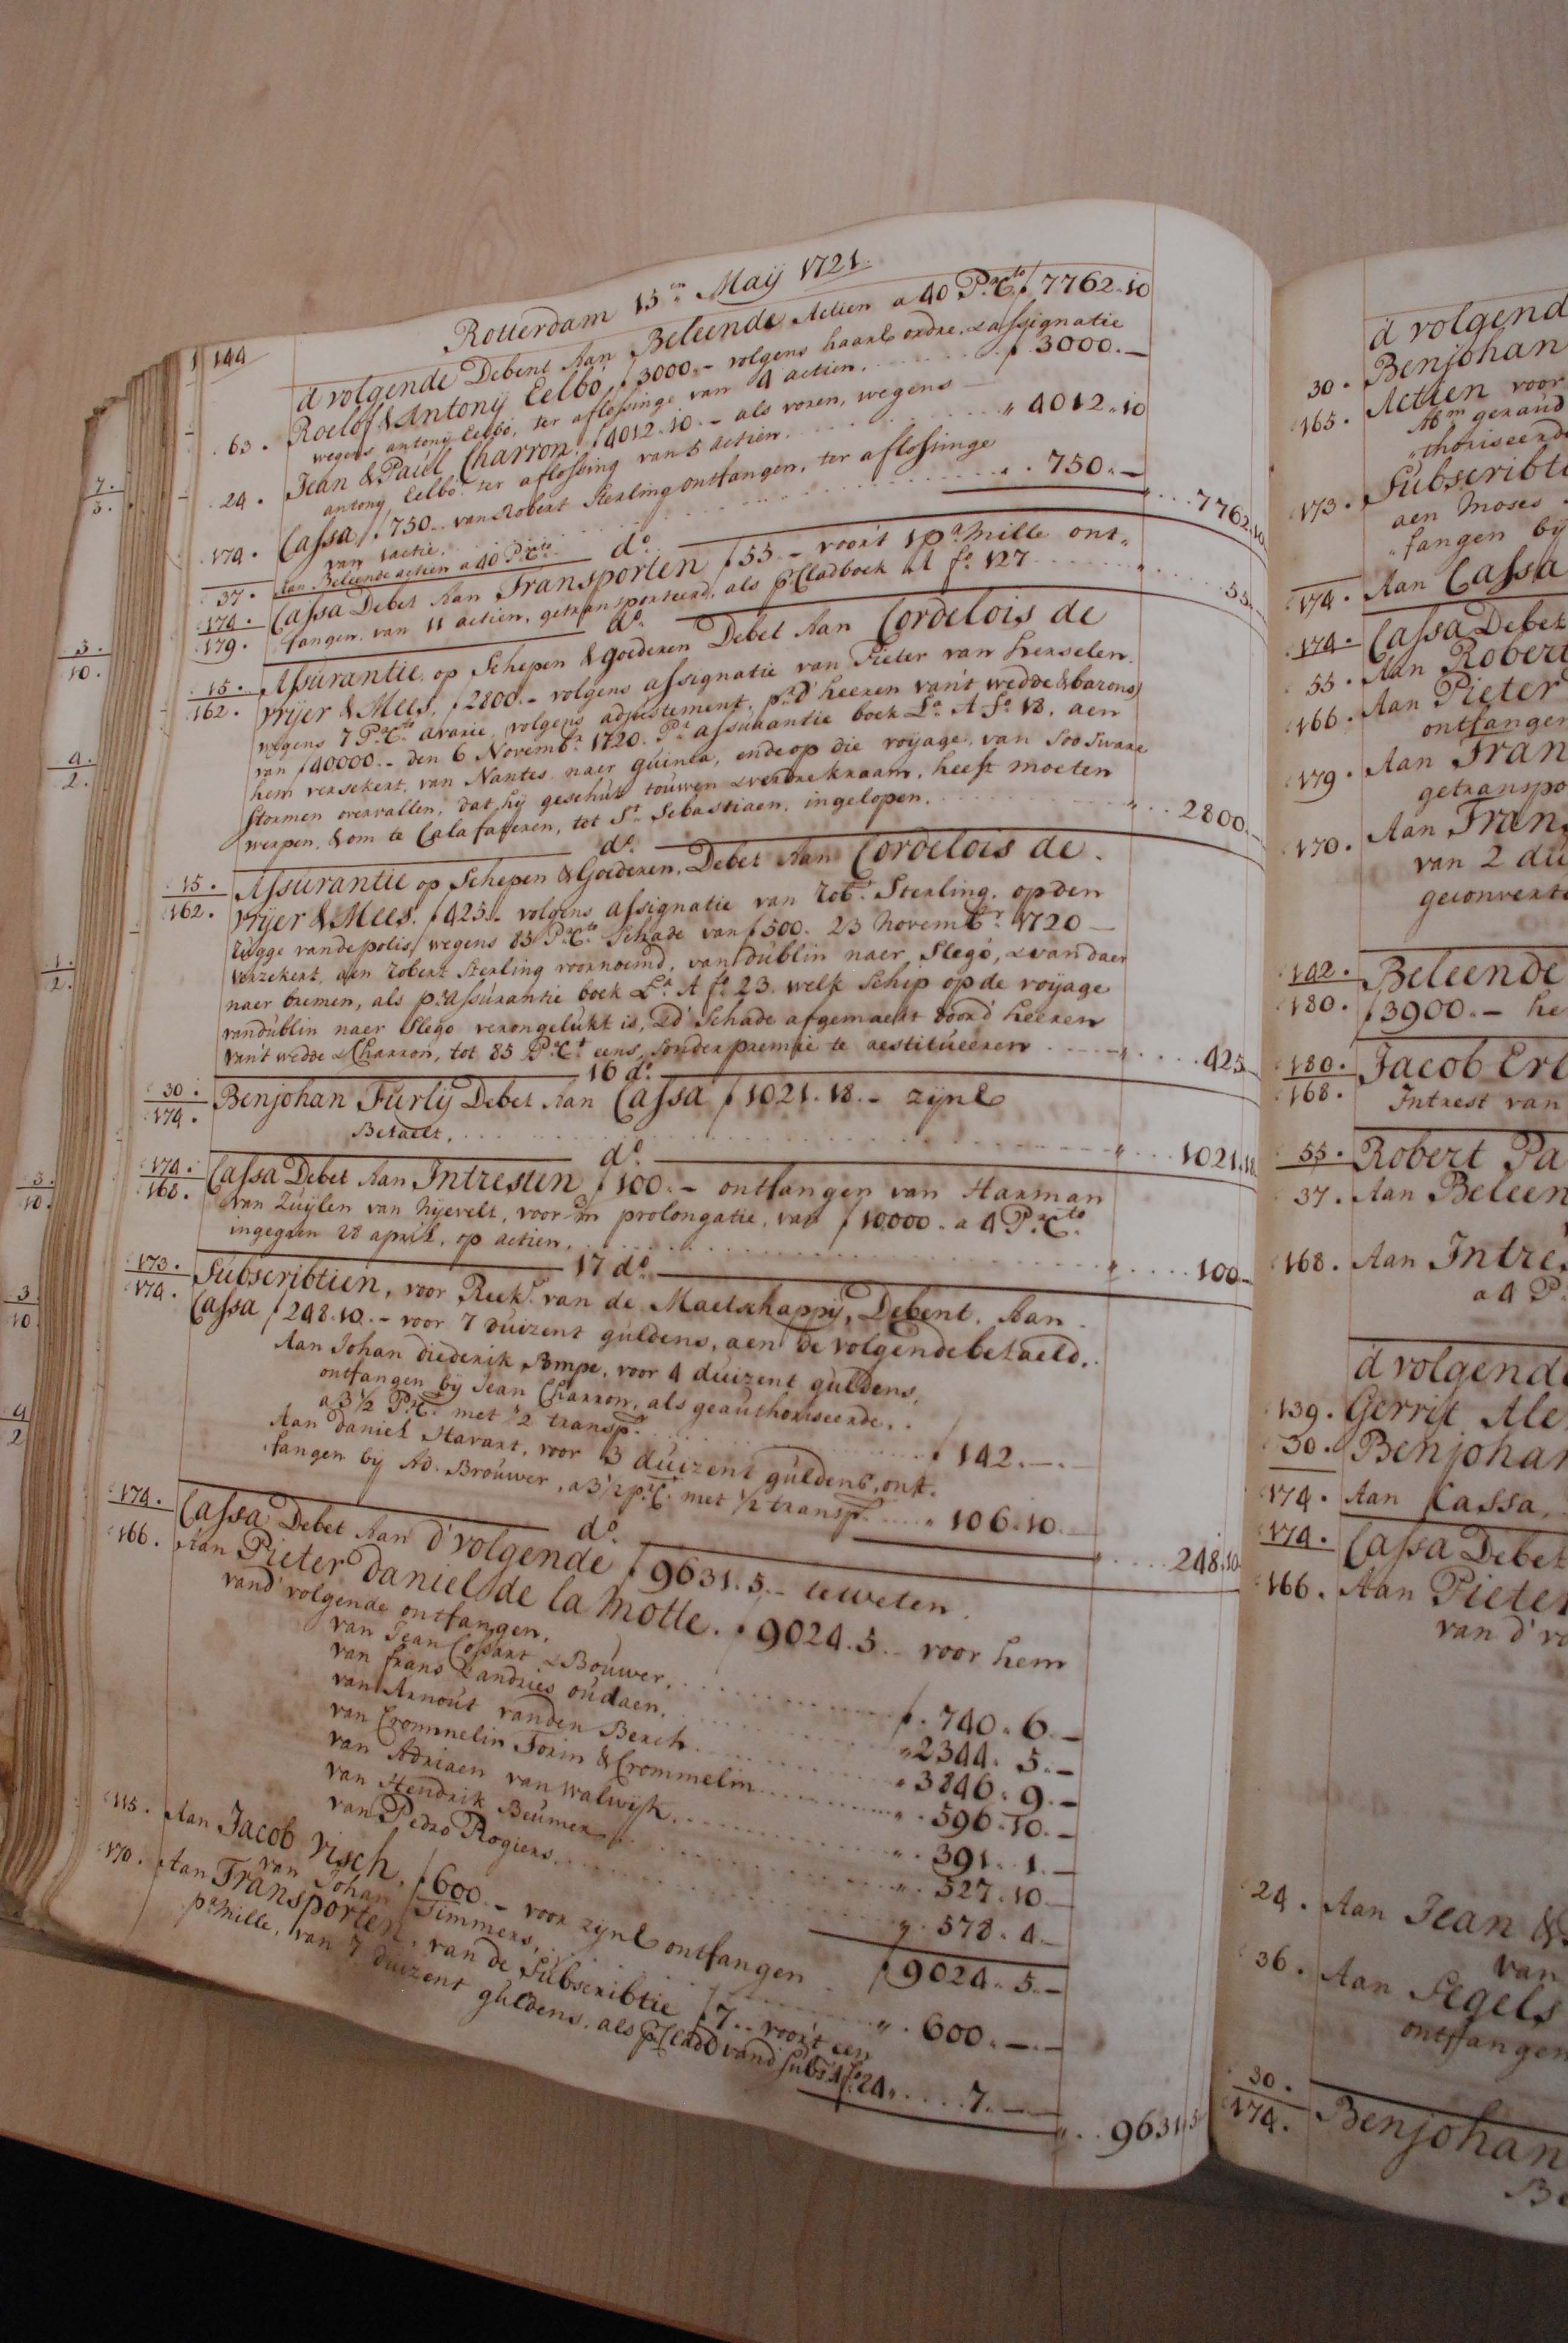 144
Rotterdam 15.en Maij 1721.
d'volgende Debent Aan Beleende Actien a 40 P.rC.to f 7762.10
63. Roelof & Antonij Eelbo, f 3000.- volgens haarl ordre, & assignatie
wegens antonij Eelbo, ter aflossinge van 4 actien. f 3000.-
24. Jean & Paul Charron, f 4012.10.- als voren, wegens
antonij Eelbo ter aflossing van 5 actien. „ 4012.10
174. Cassa f 750.- van Robert Sterling ontfangen, ter aflossinge
van 1 actie. 750.-
37. Aan Beleende actien a 40 P.rC.to 7762.10
d.o
174. Cassa Debet Aan Transporten f 55.- voor't 1 p.r mille ont„
179. fangen, van 11 actien, getransporteerd, als p.r Cladboek A f.o 127 55
d.o
15. Assurantie, op Schepen & goederen Debet Aan Cordelois de
162. Vrijer & Mees, f 2800.- volgens assignatie van Pieter van Herselen.
wegens 7 P.rC.to avarie, volgens adjustement, p.r d'heeren van't wedde & barons
van f 40000.- den 6 Novemb.r 1720. P.r assurantie boek L.a A f.o 18, aen
hem versekert, van Nantes naer guinea, ende op die voijage, van Soo Sware
Stormen overvallen, dat hij geschut touwen & verdrekraam, heeft moeten
werpen, & om te Calafateren, tot S.t Sebastiaen, ingelopen. 2800.-
d.o
15. Assurantie op Schepen & Goederen, Debet Aan Cordelois de.
162. Vrijer & Mees, f 425.- volgens assignatie van Rob.t Sterling, op den
rugge vande polis, wegens 85 P.rC.to Schade van f 500. 23 Novemb.r 1720
verzekert, aen Robert Sterling voornoemd, van dublin naer Slego, & van daer
naer bremen, als p.r assurantie boek L.a A f.o 23. welk Schip op de voijage
van dublin naer Slego verongelukt is, & d'Schade afgemaekt door d'heeren
van't wedde & Charron, tot 85 P.rC.t eens, Sonder premie te restitueeren 425
16 d.o
30. Benjohan Furlij Debet Aan Cassa f 1021.18.- zijnl
174. Betaelt. 1021.18
d.o
174. Cassa Debet Aan Intresten f 100.- ontfangen van Harman
168. van Zuijlen van Nijevelt, voor 3/m prolongatie, van f 10000.- a 4 P.rC.to
ingegaen 28 april, op actien. 100.-
17 d.o
173. Subscribtien, voor Reek.g van de Maetschappij, Debent, Aan
174. Cassa f 248.10.- voor 7 duizent guldens, aen de volgende betaeld.
Aan Johan diederik Pompe, voor 4 duizent guldens,
ontfangen bij Jean Charron, als geauthoriseerde,
a 3½ P.rC.to met ½ transp.t f 142.-.-
Aan daniel Havart, voor 3 duizent guldens, ont„
fangen bij Ad. Brouwer, a 3½ p.rC.to met ½ transp.t „ 106.10.-
248.10
d.o
174. Cassa Debet Aan d'volgende f 9631.5.- teweten.
166. Aan Pieter Daniel de la Motte. f 9024.5.- voor hem
vand'volgende ontfangen.
van Jean Cossart & Bouwer. f. 740.6.-
van frans & andries oudaen. „ 2344.5.-
van Arnout vanden Berch „ 3846.9.-
van Crommelin Torin & Crommelin „ 596.10.-
van Adriaen van walwijk. „ 391.1.-
van Hendrik Beumer „ 527.10.-
van Pedro Rogiers „ 578.4.-
f 9024.5.-
115. Aan Jacob Visch, f 600.- voor zijnl ontfangen
van Johan Timmers, „ 600.-.-
170. Aan Transporten, van de Subscribtie f 7.- voor't een
p.r mille, van 7 duizent guldens, als p.r Cladd vand'Subs: A f.o 24. 7.-.-
9631.5
7.
5.
3.
10.
4.
2.
1.
2.
3.
10.
3
10
4
2
d'volgend
30. Benjohan
165. Actien voor
thoriseerde
173. Subscribti
aen Moses
fangen bij
174. Aan Cassa
174. Cassa Debet
55. Aan Robert
166. Aan Pieter
ontfangen
179. Aan Tran
getranspo
170. Aan Trans
van 2 dui
geconverte
142. Beleende
180. f 3900.- he
180. Jacob Erb
168. Intrest van
55. Robert Pa
37. Aan Beleen
168. Aan Intre
a 4 P.
d'volgende
139. Gerrit Ale
30. Benjohan
174. Aan Cassa,
174. Cassa Debet
166. Aan Pieter
van d'vo
24. Aan Jean &
van
36. Aan Segels
ontfangen
30. Benjohan
174. Be